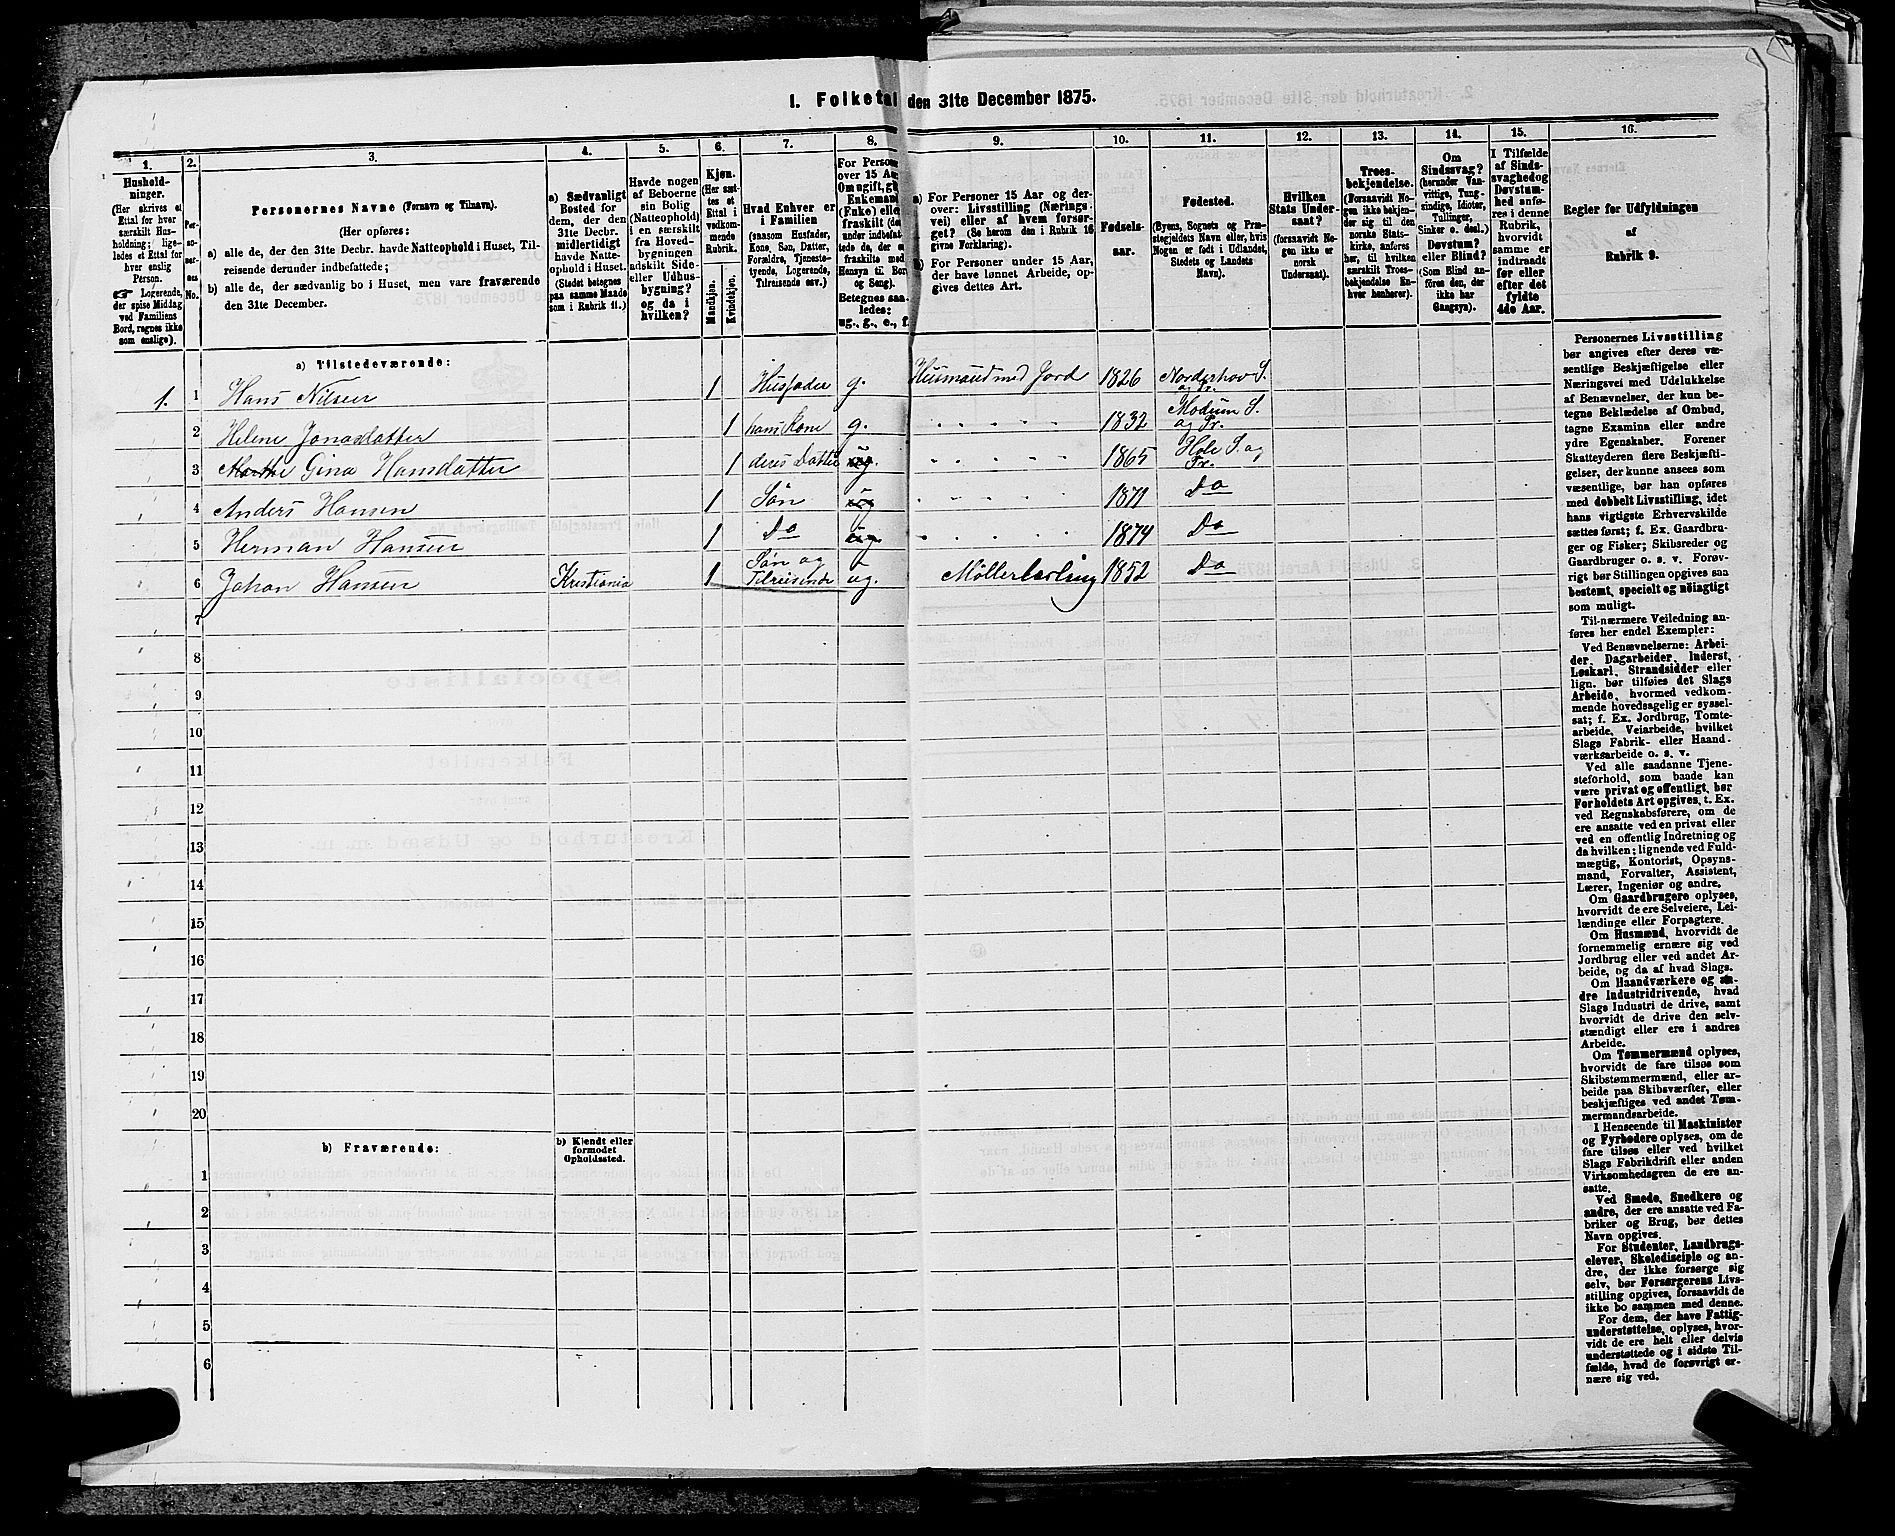 1. Folketal den 31te December 1875.
1. 2. 3. 4. 5. 6. 7. 8. 9. 10. 11. 12. 13. 14. 15. 16.
Hushold-
ninger.
(Her skrives et
Ettal for hver
særskilt Hus-
holdning; lige-
ledes et Ettal for
hver enslig
Person.
☞ Logerende,
der spise Middag
ved Familiens
Bord, regnes ikke
som enslige).
Per-
so-
ner-
nes
No.
Personernes Navne (Fornavn og Tilnavn).
(Her opføres:
a) alle de, der den 31te Decbr. havde Natteophold i Huset, Til-
reisende derunder indbefattede;
b) alle de, der sædvanlig bo i Huset, men vare fraværende
den 31te December.
a) Sædvanligt
Bosted for
dem, der den
31te Decbr.
midlertidigt
havde Natte-
ophold i Huset.
(Stedet betegnes
paa samme Maade
som i Rubrik 11.)
Havde nogen
af Beboerne
sin Bolig
(Natteophold)
i en særskilt
fra Hoved-
bygningen
adskilt Side-
eller Udhus-
bygning?
og da i
hvilken?
Kjøn.
(Her sæt-
tes et
Ettal i
vedkom-
mende
Rubrik.
Mandkjøn.
Kvindekjøn.
Hvad Enhver er
i Familien
(saasom Husfader,
Kone, Søn, Datter,
Forældre, Tjeneste-
tyende, Logerende,
Tilreisende osv.)
For Persone
over 15 Aa
Om ugift, gi
Enkeman
(Enke) elle
fraskilt (de
under indbefat-
tede de, der e
fraskilte med
Hensyn til Bor
og Seng).
Betegnes saa-
ledes:
ug., g., e., f.
a) For Personer 15 Aar og der-
over: Livsstilling (Nærings-
vei) eller af hvem forsør-
get? (Se herom den i Rubrik 16
givne Forklaring).
b) For Personer under 15 Aar,
der have lønnet Arbeide, op-
gives dettes Art.
Fødsels-
aar.
Fødested.
(Byens, Sognets og Præ-
stegjeldets Navn eller, hvis
Nogen er født i Udlandet,
Stedets og Landets
Navn).
Hvilken
Stats Under-
saat?
(forsaavidt No-
gen ikke er
norsk
Undersaat).
Troes-
bekjendelse.
(Forsaavidt No-
gen ikke bekjen-
der sig til den
norske Stats-
kirke, anføres
her, til hvilken
særskilt Troes-
bekjendelse En-
hver henhører).
Om
Sindssvag?
(herunder Van-
vittige, Tung-
sindige, Idioter,
Tullinger,
Sinker o. desl.)
Døvstum?
eller Blind?
(Som Blind an-
føres den, der
ikke har
Gangsyn).
I Tilfælde
af Sinds-
svaghed og
Døvstum-
hed anfø-
res i denne
Rubrik,
hvorvidt
samme er
indtraadt
før eller
efter det
fyldte
4de Aar.
Regler for Udfyldningen
af
Rubrik 9.
a) Tilstedeværende:
1. 1 Hans Nilsen 1 Husfader g. Huumand med Jord 1826 Norderhov S. og Pr.
2 Helene Jonasdatter 1 hans Kone g. " " " " " 1832 Modum S. og Pr.
3 Marthe Gina Hansdatter 1 deres Datter ug. " " " " " 1865 Hole S. og Pr.
4 Anders Hansen 1 Søn ug " " " " " 1871 Do
5 Herman Hansen 1 Do ug " " " " " 1874 Do
6 Johan Hansen Kristiania 1 Søn og Tilreisende ug. Møllerlærling 1852 Do
7
8
9
10
11
12
13
14
15
16
17
18
19
20
b) Fraværende:
b) Kjendt eller
formodet
Opholdssted.
1
2
3
4
5
6
Personernes Livsstilling
bør angives efter deres væ-
sentlige Beskjæftigelse eller
Næringsvei med Udelukkelse
af Benævnelser, der kun be-
tegne Beklædelse af Ombud,
tagne Examina eller andre
ydre Egenskaber. Forener
Skatteyderen flere Beskjæfti-
gelser, der kunne ansees som
væsentlige, bør han opføres
med dobbelt Livsstilling, idet
hans vigtigste Erhvervskilde
sættes først; f. Ex. Gaardbru-
ger og Fisker; Skibsreder og
Gaardbruger o. s. v. Forøv-
rigt bør Stillingen opgives saa
bestemt, specielt og nöiagtigt
som muligt.
Til nærmere Veiledning an-
føres her endel Exempler:
Ved Benævnelserne: Arbei-
der, Dagarbeider, Inderst,
Løskarl, Strandsidder eller
lign. bør tilføies det Slags
Arbeide, hvormed vedkom-
mende hovedsagelig er syssel-
sat; f. Ex. Jordbrug, Tomte-
arbeide, Veiarbeide, hvilket
Slags Fabrik- eller Haand-
værksarbeide o. s. v.
Ved alle saadanne Tjene-
steforhold, som baade kan
være privat og offentligt, bør
Forholdets Art opgives, t. Ex.
ved Regnskabsførere, om de
ere ansatte ved en privat eller
ved en offentlig Indretning og
da hvilken; lignende ved Fuld-
mægtig, Kontorist, Opsyns-
mand, Forvalter, Assistent,
Lærer, Ingeniør og andre.
Om Gaardbrugere oplyses,
hvorvidt de ere Selveiere, Lei-
lændinge eller Forpagtere.
Om Husmænd, hvorvidt de
fornemmelig ernære sig ved
Jordbrug eller ved andet Ar-
beide, og da af hvad Slags.
Om Haandværkere og an-
dre Industridrivende, hvad
Slags Industri de drive, samt
hvorvidt de drive den selv-
stændigt eller ere i andres
Arbeide.
Om Tømmermænd oplyses,
hvorvidt de fare tilsøs som
Skibstømmermænd, eller ar-
beide paa Skibsværfter, eller
beskjæftiges ved andet Tøm-
mermandsarbeide.
I Henseende til Maskinister
og Fyrbødere oplyses, om de
fare tilsøs eller ved hvilket
Slags Fabrikdrift eller anden
Virksomhedsgren de ere an-
satte.
Ved Smede, Snedkere og
andre, der ere ansatte ved Fa-
briker og Brug, bør dettes
Navn opgives.
For Studenter, Landbrugs-
elever, Skoledisciple og an-
dre, der ikke forsørge sig
selv, bør Forsørgerens Livs-
stilling opgives, forsaavidt de
ikke bo sammen med denne.
For dem, der have Fattig-
understøttelse, oplyses, hvor-
vidt de ere helt eller delvis
understøttede og i sidste Til-
fælde, hvad de forøvrigt er-
nære sig ved.